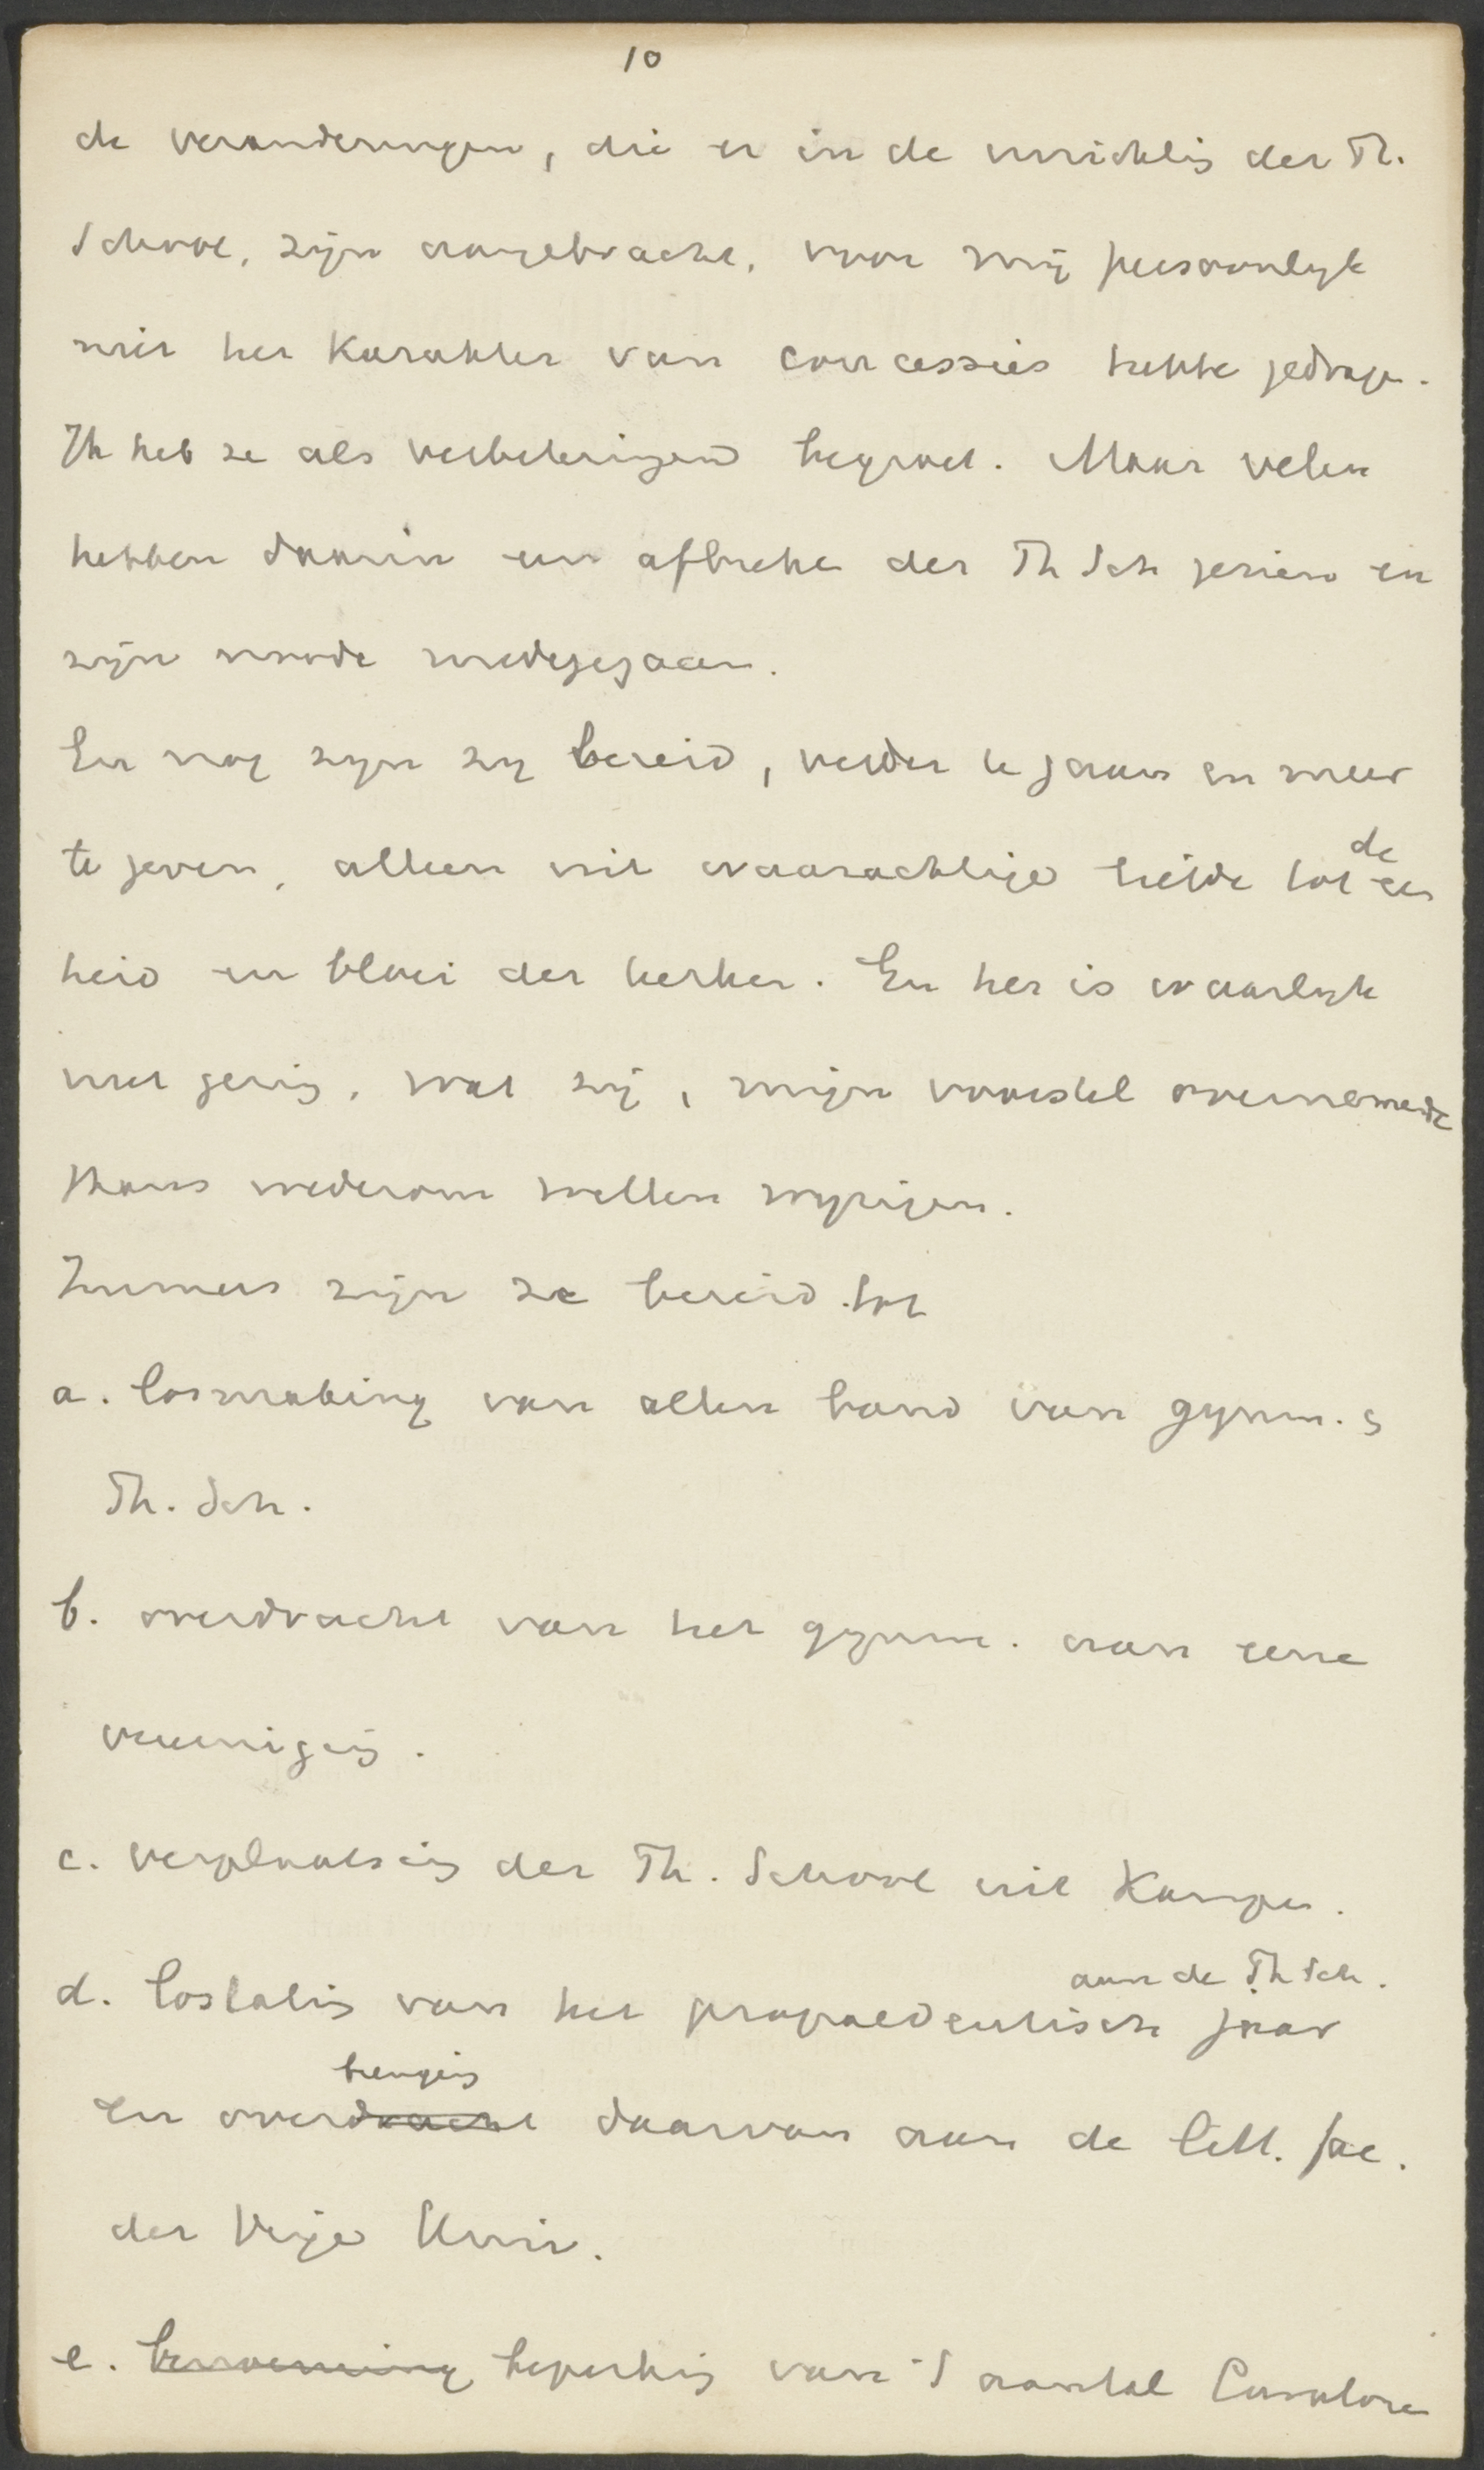 10
de veranderingen, die er in de inrichtig der Th.
School, zijn aangebracht, voor mij persoonlijk
niet het karakter van concessies hebbe gedrage.
Ik heb ze als verbeteringen begroet. Maar velen
hebben daarin een afbreke der Th Sch gezien en
zijn node medegegaan.
En nog zijn zij bereid, verder te gaan en meer
te geven, alleen uit waarachtige liefde tot de een
heid en bloei der kerken. En het is waarlijk
niet gering, wat zij, mijn voorstel overnemende
thans wederom willen wijzigen.
Immers zijn ze bereid tot
a. losmaking van allen band van gymn. &
Th. Sch.
b. overdracht van het gymn. aan eene
vereeniging.
c. verplaatsing der Th. School uit Kampen.
d. loslatig van het propaedeutisch jaar aan de Th Sch.
en overdracht brenging daarvan aan de litt. fac.
der Vrije Univ.
e. benoeming beperkig van 't aantal Curatoren